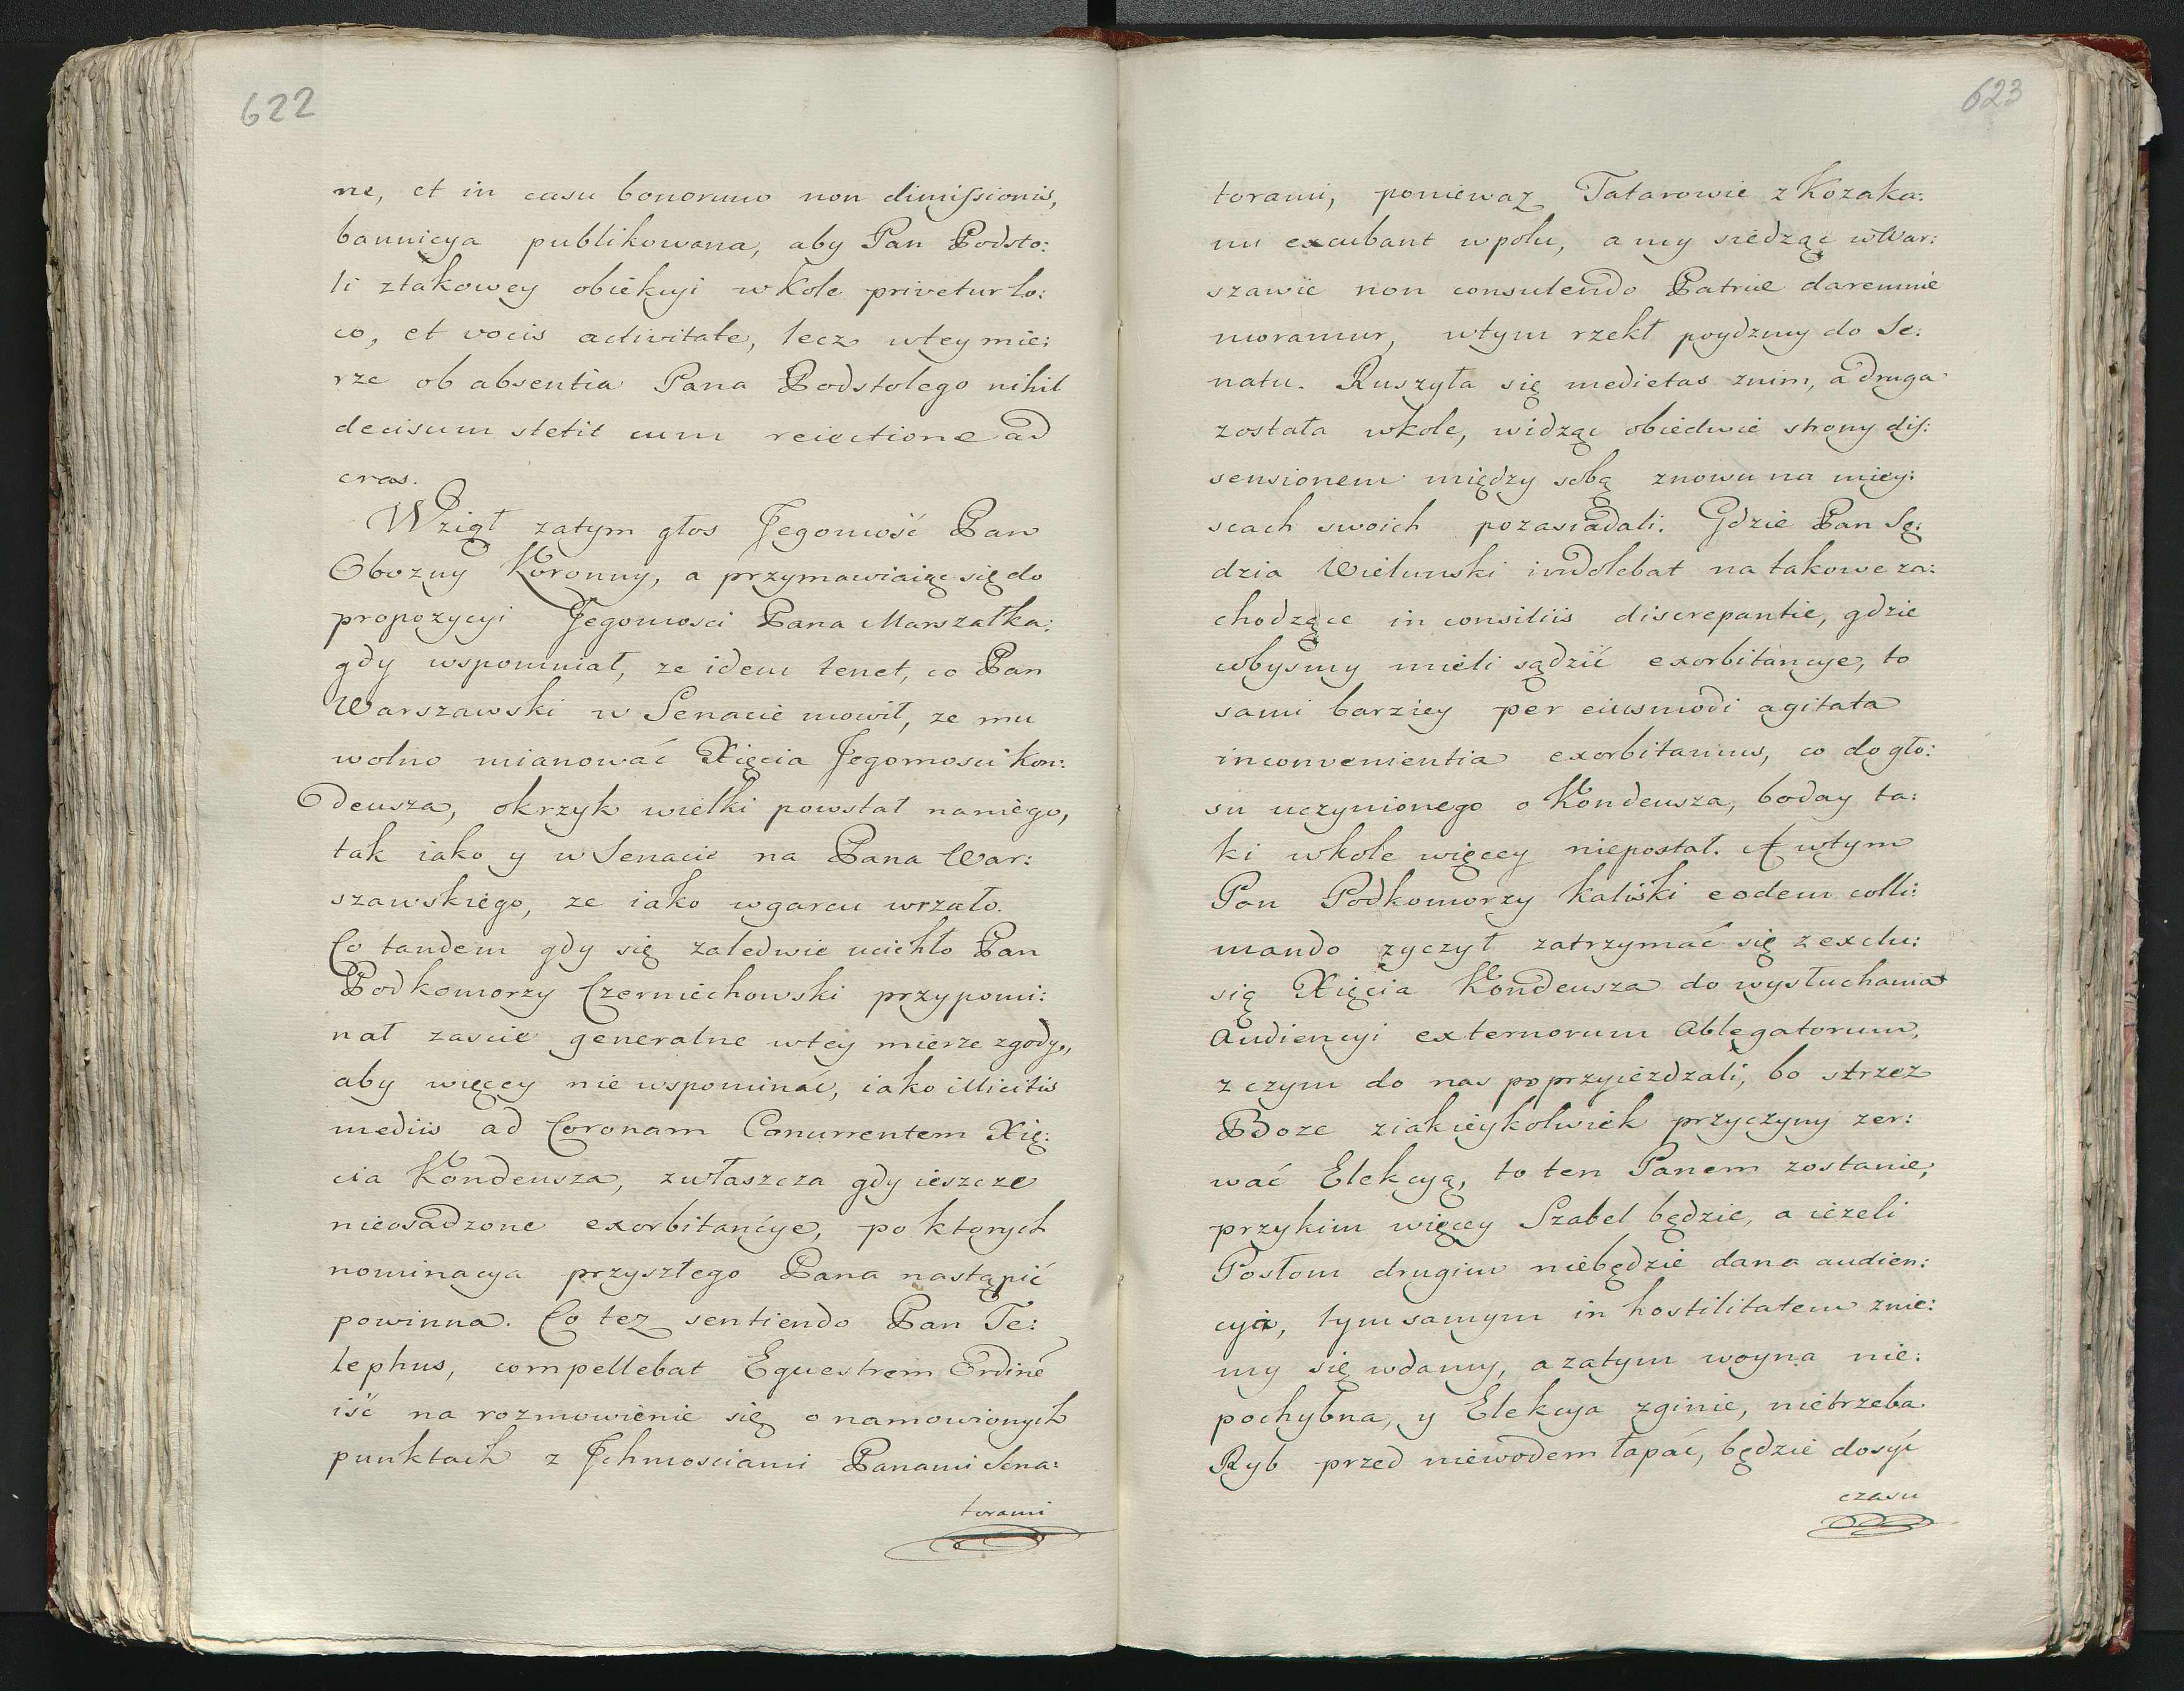 622
ne, et in casu bonorum non dimissionis,
bannicya publikowana, aby Pan Podsto:
li ztakowey obiekcyi w Kole privetur lo:
co, et vocis activitate, lecz wtey mie:
rze ob absentia Pana Podstolego nihil
decisum stetit cum reiectione ad
cras.
Wziął zatym głos Jegomość Pan
Obozny Koronny, a przymawiaiąc się do
propozycyi Jegomosci Pana Marszałka:
gdy wspomniał, ze idem tenet, co Pan
Warszawski w Senacie mowił, ze mu
wolno mianować Xięcia Jegomosci Kon:
deusza, okrzyk wielki powstał naniego,
tak iako y w Senacie na Pana War:
szawskiego, ze iako wgarcu wrzało.
Co tandem gdy się zaledwie ucichło Pan
Podkomorzy Czerniechowski przypomi:
nał zascie generalne wtey mierze zgody,
aby więcey nie wspominać, iako illicitis
mediis ad Coronam Concurrentem Xię:
cia Kondeusza, zwłaszcza gdy ieszcze
nieosadzone exorbitancye, po ktorych
nominacya przyszłego Pana nastąpić
powinna. Co tez sentiendo Pan Te:
lephus, compellebat Equestrem Ordinē
iść na rozmowienie się o namowionych
punktach z Ichmosciami Panami Sena:
torami
623
torami, poniewaz Tatarowie z Kozaka:
mi excubant wpolu, a my siedząc wWar:
szawie non consulendo Patriæ daremnie
moramur, wtym rzekł poydzmy do Se:
natu. Ruszyła się medietas znim, a druga
została wkole, widząc obiedwie strony dis:
sensionem między sobą znowu na miey:
scach swoich pozasiadali. Gdzie Pan Sę:
dzia Wielunski indolebat na takowe za:
chodzące in consiliis discrepantie, gdzie
cobysmy mieli sądzić exorbitancye, to
sami barziey per eiusmodi agitata
inconvenientia exorbitamus, co do gło:
su uczynionego o Kondeusza, boday ta:
ki wkole więcey niepostał. A wtym
Pan Podkomorzy Kaliski eodem colli:
mando zyczył zatrzymać się z exclu:
się Xięcia Kondeusza do wysłuchania
Audiencyi externorum Ablegatorum,
z czym do nas poprzyiezdzali, bo strzez
Boze ziakieykolwiek przyczyny zer:
wać Elekcyą, to ten Panem zostanie,
przykim więcey Szabel będzie, a iezeli
Posłom drugim niebędzie dana audien:
cya, tymsamym in hostilitatem znie:
my się wdamy, a zatym woyna nie:
pochybna, y Elekcya zginie, nietrzeba
Ryb przed niewodem łapać, będzie dosyć
czasu